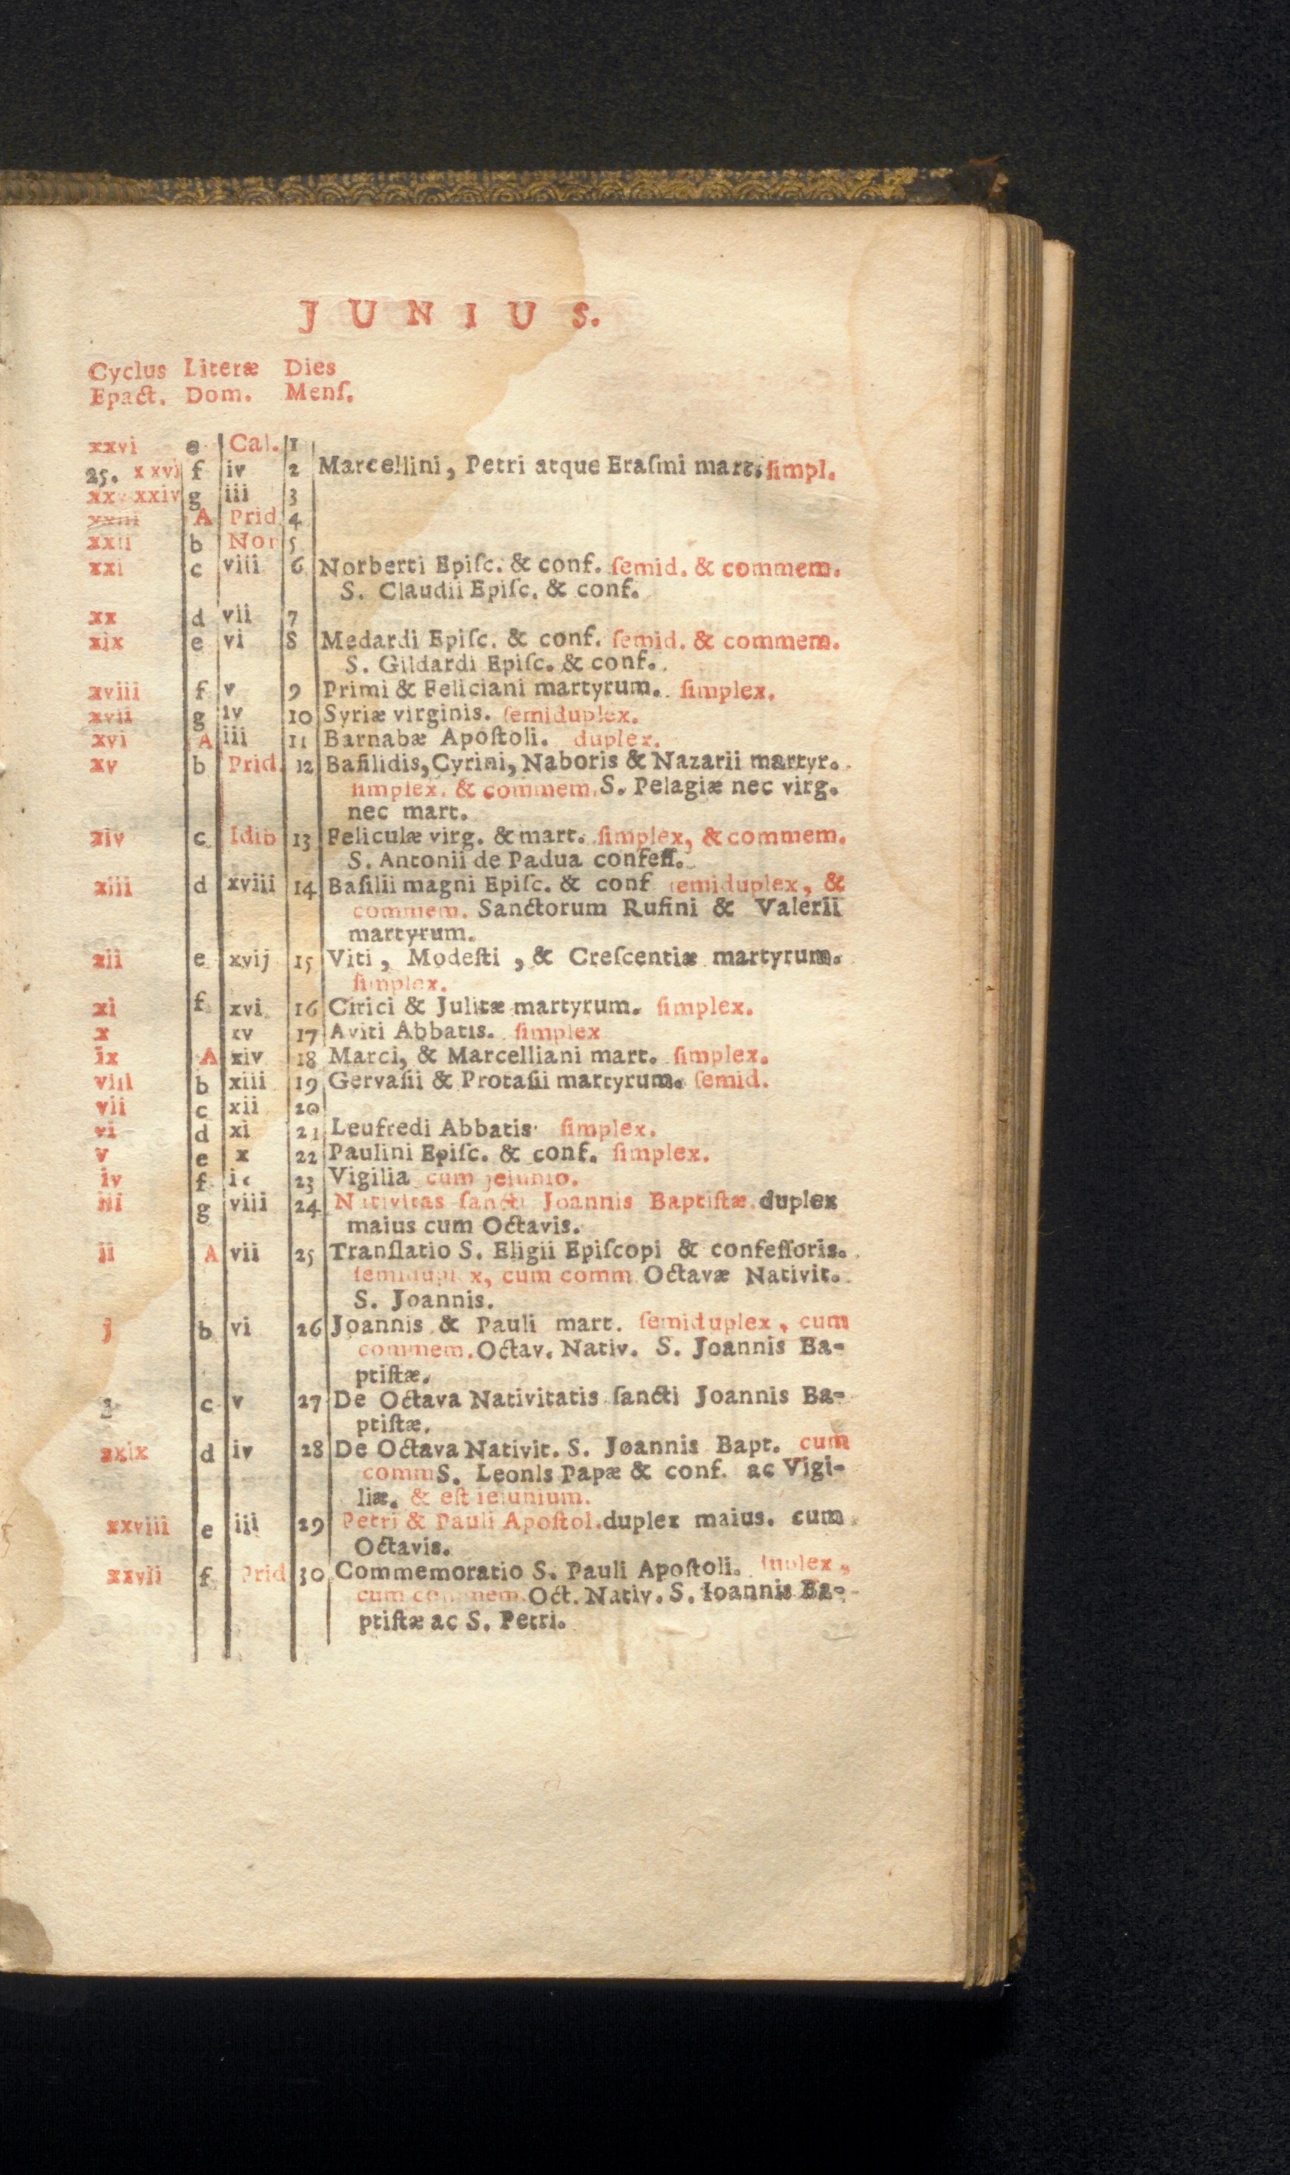 JUNIUS.
Cyclus Literæ Dies
Epact. Dom. Menſ.
xxvi e Cal. 1
25. xxvi f iv 2 Marcellini, Petri atque Eraſmi mart. ſimpl.
xxv xxiv g iii 3
xxiii A Prid 4
xxii b Non 5
xxi c viii 6 Norberti Epiſc. & conf. ſemid. & commem.
S. Claudii Epiſc. & conf.
xx d vii 7
xix e vi 8 Medardi Epiſc. & conf. ſemid. & commem.
S. Gildardi Epiſc. & conf.
xviii f v 9 Primi & Feliciani martyrum. ſimplex.
xvii g iv 10 Syriæ virginis. ſemiduplex.
xvi A iii 11 Barnabæ Apoſtoli. duplex.
xv b Prid. 12 Baſilidis, Cyrini, Naboris & Nazarii martyr.
ſimplex. & commem. S. Pelagiæ nec virg.
nec mart.
xiv c Idib 13 Feliculæ virg. & mart. ſimplex, & commem.
S. Antonii de Padua confeſſ.
xiii d xviii 14 Baſilii magni Epiſc. & conf ſemiduplex, &
commem. Sanctorum Rufini & Valerii
martyrum.
xii e xvij 15 Viti, Modeſti, & Creſcentiæ martyrum.
ſimplex.
xi f xvi 16 Cirici & Julitæ martyrum. ſimplex.
x xv 17 Aviti Abbatis. ſimplex
ix A xiv 18 Marci, & Marcelliani mart. ſimplex.
viii b xiii 19 Gervaſii & Protaſii martyrum. ſemid.
vii c xii 20
vi d xi 21 Leufredi Abbatis ſimplex.
v e x 22 Paulini Epiſc. & conf. ſimplex.
iv f ix 23 Vigilia cum jeiunio.
iii g viii 24 Nativitas ſancti Joannis Baptiſtæ. duplex
maius cum Octavis.
ii A vii 25 Tranſlatio S. Eligii Epiſcopi & confeſſoris.
ſemiduplex, cum comm Octavæ Nativit.
S. Joannis.
j b vi 26 Joannis & Pauli mart. ſemiduplex, cum
commem. Octav. Nativ. S. Joannis Ba-
ptiſtæ.
c v 27 De Octava Nativitatis ſancti Joannis Ba-
ptiſtæ.
xxix d iv 28 De Octava Nativit. S. Joannis Bapt. cum
comm S. Leonis Papæ & conf. ac Vigi-
liæ. & eſt ieiunium.
xxviii e iii 29 Petri & Pauli Apoſtol. duplex maius. cum
Octavis.
xxvii f Prid 30 Commemoratio S. Pauli Apoſtoli. duplex,
cum commem. Oct. Nativ. S. Ioannis Ba-
ptiſtæ ac S. Petri.